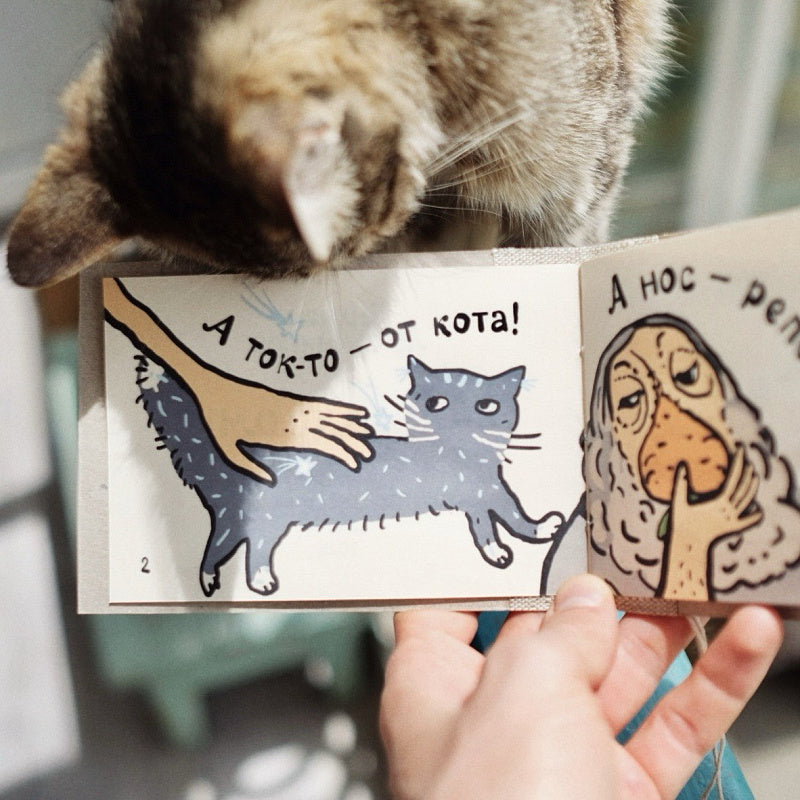 А ток-то – от кота!
2
А нос –